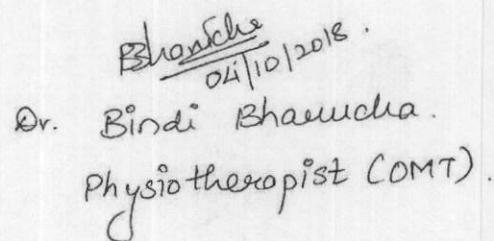 04/10/2018.
Dr. Bindi Bharucha.
Physiotherapist (OMT).